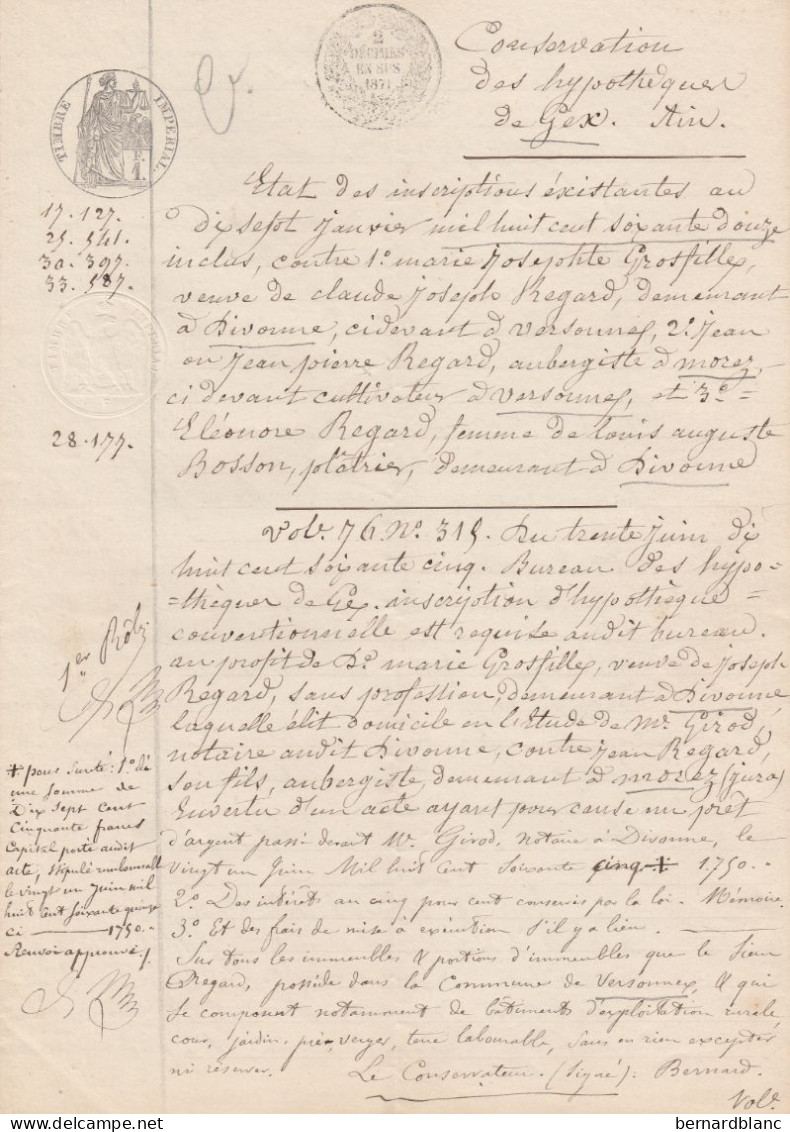 2
DÉCIMES
EN SUS
1871
TIMBRE IMPERIAL
F.
1.
Conservation
des hypothèques
de Gex. Ain.
17.127.
25.541.
30.397.
33.587.
28.177.
Etat des inscriptions éxistantes au
dix sept Janvier mil huit cent soixante douze
inclus, contre 1º. marie Josephte Grosfillex,
veuve de claude Joseph Regard, demeurant
à Divonne, cidevant à Versonnex, 2º. Jean
ou Jean pierre Regard, aubergiste à morez,
ci devant cultivateur à Versonnex, et 3º=
Eléonore Regard, femme de Louis auguste
Bosson, plâtrier, demeurant à Divonne
Vol. 76. Nº. 315. Du trente Juin dix
huit cent soixante cinq. Bureau des hypo=
=thèques de Gex. inscription d'hypothèque
conventionnelle est requise audit bureau.
au profit de De. marie Grosfillex, veuve de Joseph
Regard, sans profession, demeurant à Divonne
laquelle élit domicile en l'Etude de Me. Girod,
notaire audit Divonne, contre Jean Regard,
son fils, aubergiste, demeurant à morez (jura)
En vertu d'un acte ayant pour cause un prêt
d'argent passé devant Me. Girod, notaire à Divonne, le
vingt un Juin Mil huit cent soixante cinq + 1,750..
2º. Des intérêts au cinq pour cent conservés par la loi. Mémoire.
3º. Et des frais de mise à exécution s'il y a lieu.
Sur tous les immeubles & portions d'immeubles que le Sieur
Regard, possède dans la Commune de Versonnex, & qui
se composent notamment de bâtiments d'exploitation rurale
cour, jardin, prés, verger, terre labourable, sans en rien excepter
ni réserver. Le Conservateur. (Signé): Bernard.
Vol.
1er Rôle
+ pour sureté: 1º. de
une somme de
Dix sept cent
Cinquante francs
Capital porté audit
acte, stipulé remboursable
le vingt un Juin mil
huit cent soixante quinze
ci 1750.
Renvoi approuvé.
bernardblanc